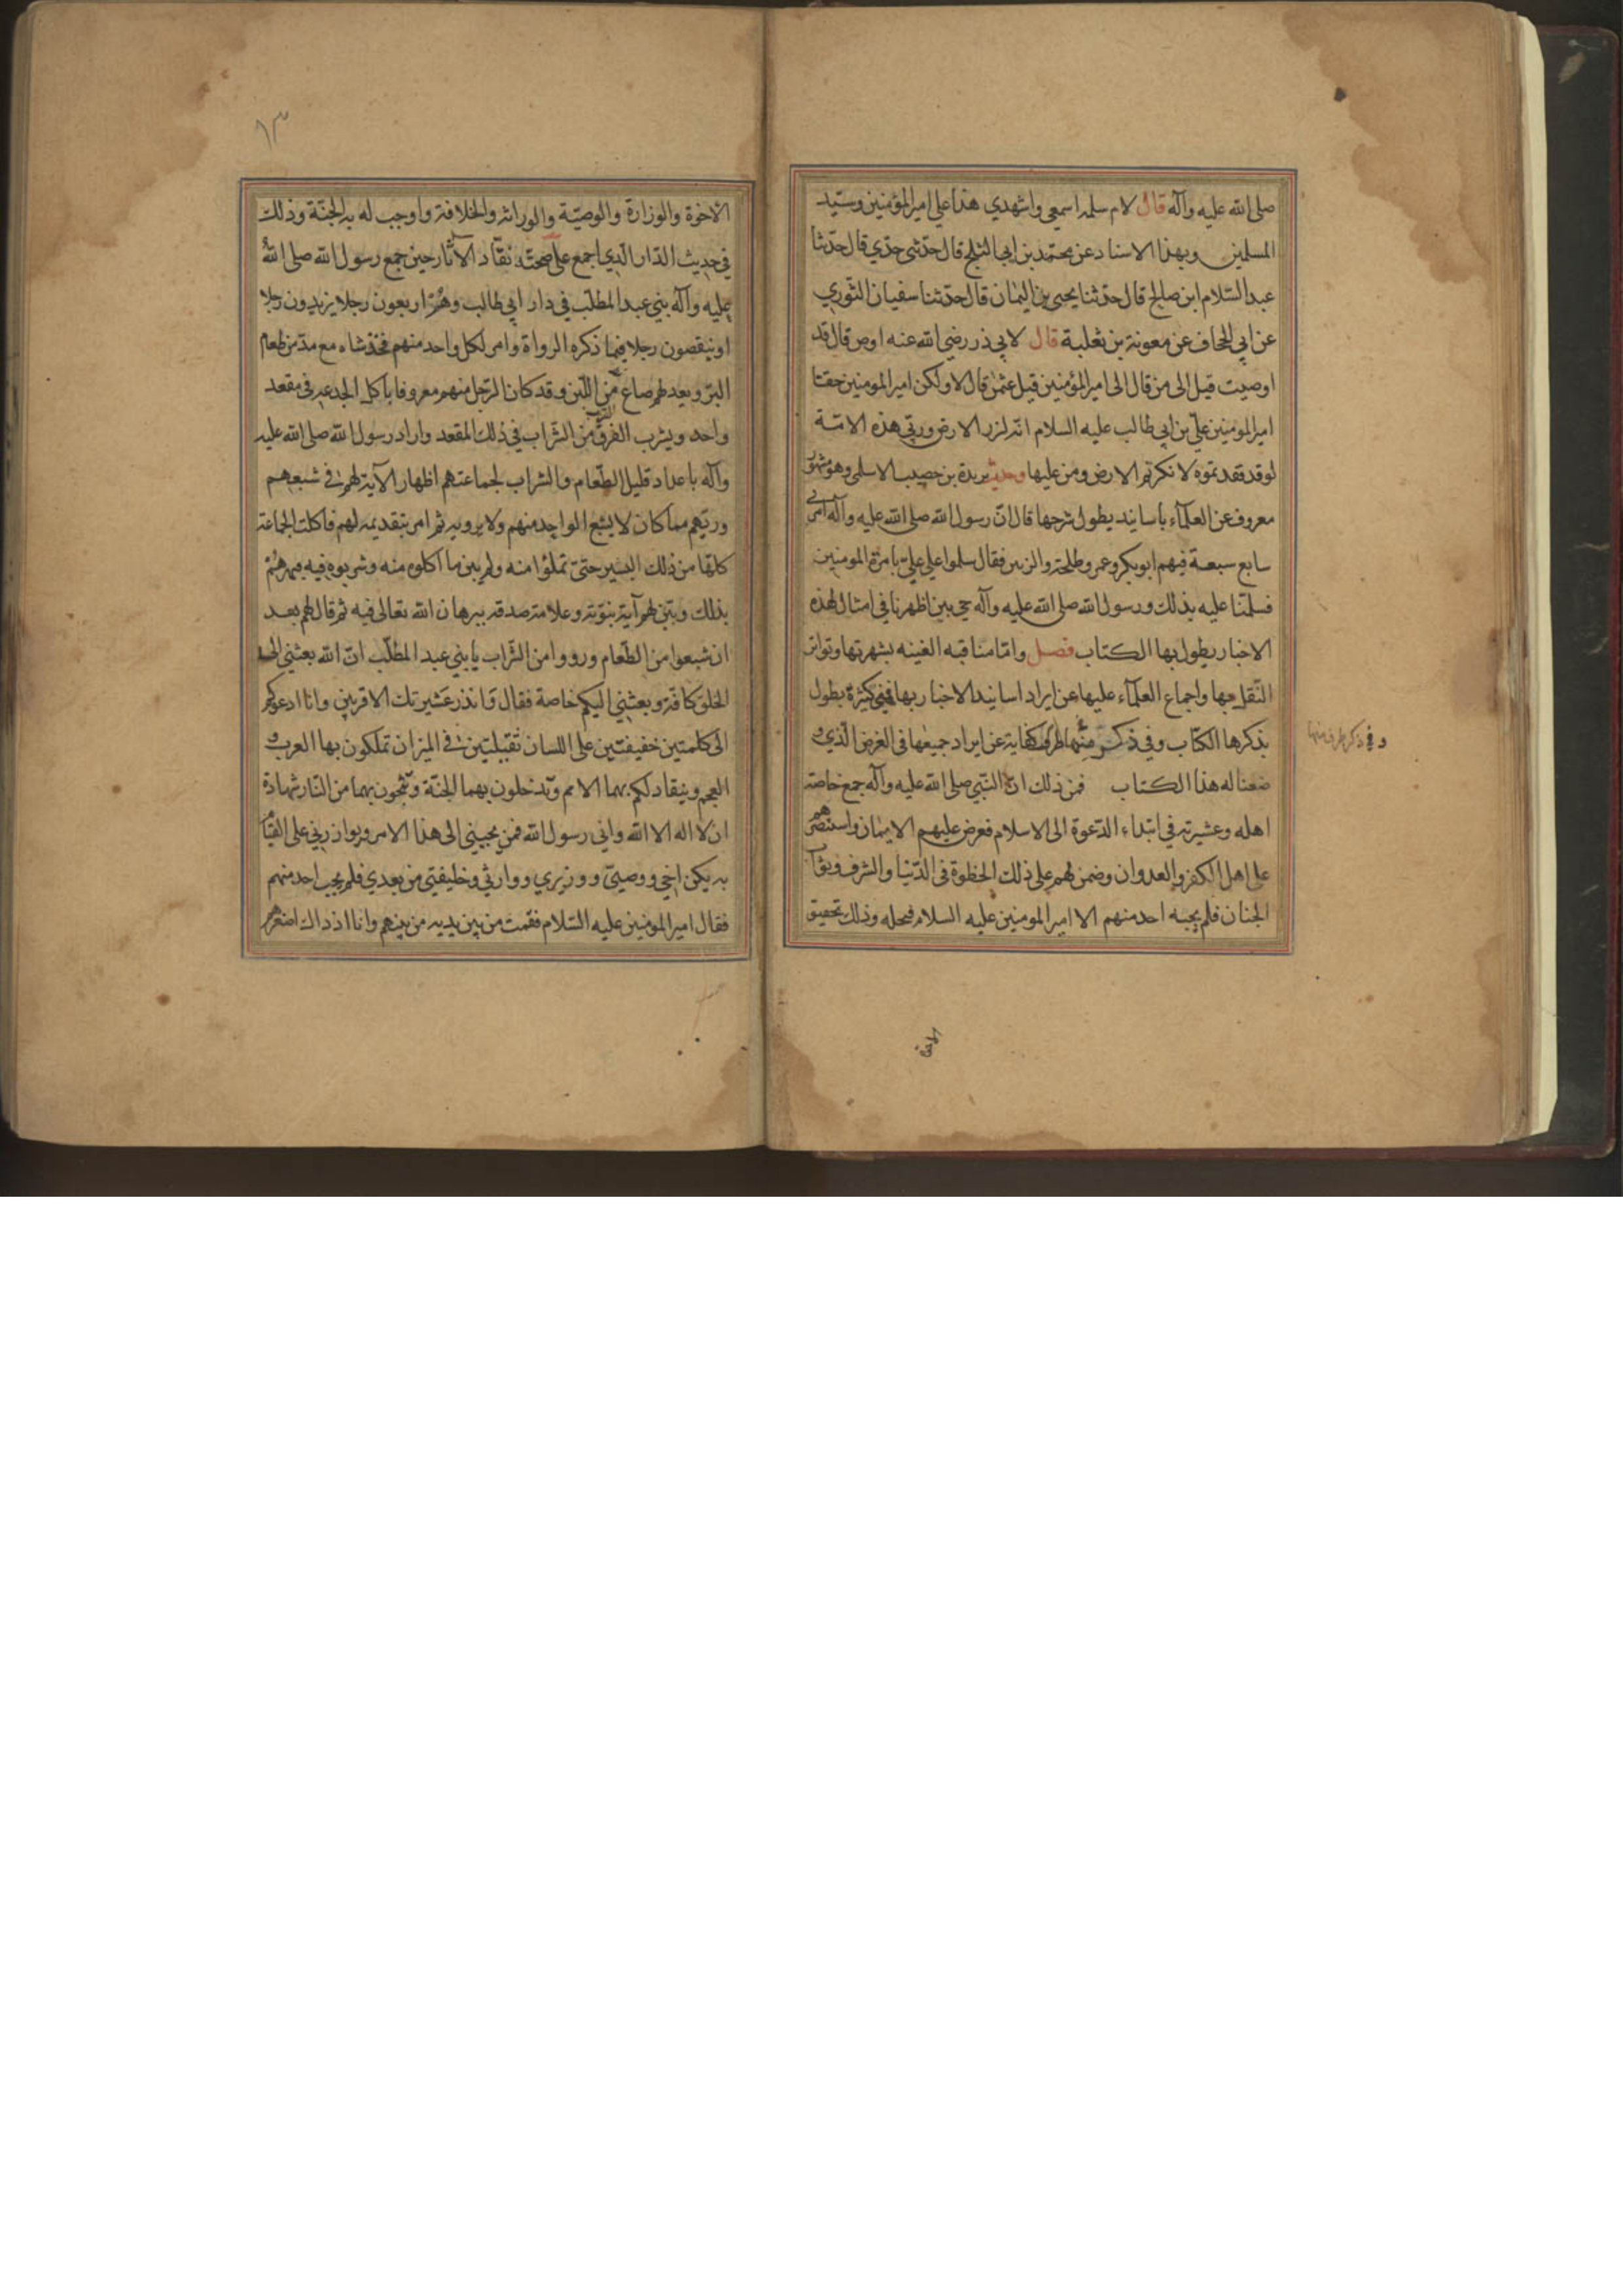 صلى الله عليه وآله قال لام سلمه اسمعي واشهدي هذا علي امير المؤمنين وسيّد
المسلمين وبهذا الاسناد عن محمّد بن ابي الثلج قال حدّثني جدّي قال حدّثنا
عبد السّلام ابن صالح قال حدّثنا يحيى بن اليمان قال حدّثنا سفيان الثوري
عن ابي الجحاف عن معوية بن ثعلبة قال لابي ذر رضي الله عنه اوص قال قد
اوصيت قيل الى من قال الى امير المؤمنين قيل عثمن قال لا ولكن امير المومنين حقّا
امير المومنين علّي بن ابي طالب عليه السلام انه لزر الارض وربّي هذه الامّة
لو قد فقدتموه لانكرتم الارض ومن عليها وحديث بريدة بن حصيب الاسلمي وهو مشهور
معروف عن العلمآء باسانيد يطول شرحها قال انّ رسول الله صلى الله عليه وآله امرني
سابع سبعة فيهم ابو بكر وعمر وطلحة والزبير فقال سلموا علي عليّ بامرة المومنين
فسلّمنا عليه بذلك ورسول الله صلى الله عليه وآله حي بين اظهرنا في امثال لهذه
الاخبار يطول بها الكتاب فصل وامّا مناقبه الغنيه بشهرتها وتواتر
النّقل بها واجماع العلمآء عليها عن ايراد اسانيد الاخبار بها فهي كثيرة يطول
بذكرها الكتاب وفي ذكر منها طرف كفاية عن ايراد جميعها في الغرض الّذي و
وفي ذكر طرف منها
ضعنا له هذا الكتاب فمن ذلك انّ النّبي صلى الله عليه وآله جمع خاصة
اهله وعشيرته في ابتداء الدّعوة الى الاسلام فعرض عليهم الايمان واستنصرهم
على اهل الكفر والعدوان وضمن لهم على ذلك الحظوة في الدّنيا والشرف وثوآب
الجنان فلم يجبه احد منهم الا امير المومنين عليه السلام فنحله وذلك تحقيق
الاخوة
١٣
الاخوة والوزارة والوصيّة والوراثة والخلافة واوجب له به الجنّة وذلك
في حديث الدّار الّذي اجمع على صحّته نقّاد الآثار حين جمع رسول الله صلى الله
عليه وآله بني عبد المطلّب في دار ابي طالب وهم اربعون رجلا يزيدون رجلا
او ينقصون رجلا فيما ذكره الرواة وامر لكل واحد منهم فخذ شاه مع مدّ من طعام
البرّ ويعد لهم صاع من اللّبن وقد كان الرّجل منهم معروفا باكل الجدعه في مقعد
واحد ويشرب الفرق من الشّراب في ذلك المقعد واراد رسول الله صلى الله عليه
وآله باعداد قليل الطّعام والشراب لجماعتهم اظهار الآية لهم في شبعهم
وريّهم مما كان لا يشبع الواحد منهم ولا يرويه ثم امر بتقديمه لهم فاكلت الجماعة
كلّها من ذلك اليسير حتىّ تملؤا منه ولم يبن ما اكلوه منه وشربوه فيه فبهرهم
بذلك وبيّن لهم آية نبوّته وعلامة صدقه ببرهان الله تعالى فيه ثم قال لهم بعد
ان شبعوا من الطّعام ورووا من الشّراب يا بني عبد المطلّب انّ الله بعثني الى
الخلق كافّة وبعثني اليكم خاصة فقال وانذر عشيرتك الاقربين وانا ادعوكم
الى كلمتين خفيفتين على اللسان ثقيلتين في الميزان تملكون بها العرب و
العجم وينقاد لكم بهما الامم وتدخلون بهما الجنّة وتنجون بهما من النّار شهادة
ان لا اله الا الله واني رسول الله فمن يجيبني الى هذا الامر ويوازرني على القيام
به يكن اخي ووصيّي ووزيري ووارثي وخليفتي من بعدي فلم يجب احد منهم
فقال امير المومنين عليه السّلام فقمت من بين يديه من بينهم وانا اذ ذاك اصغرهم